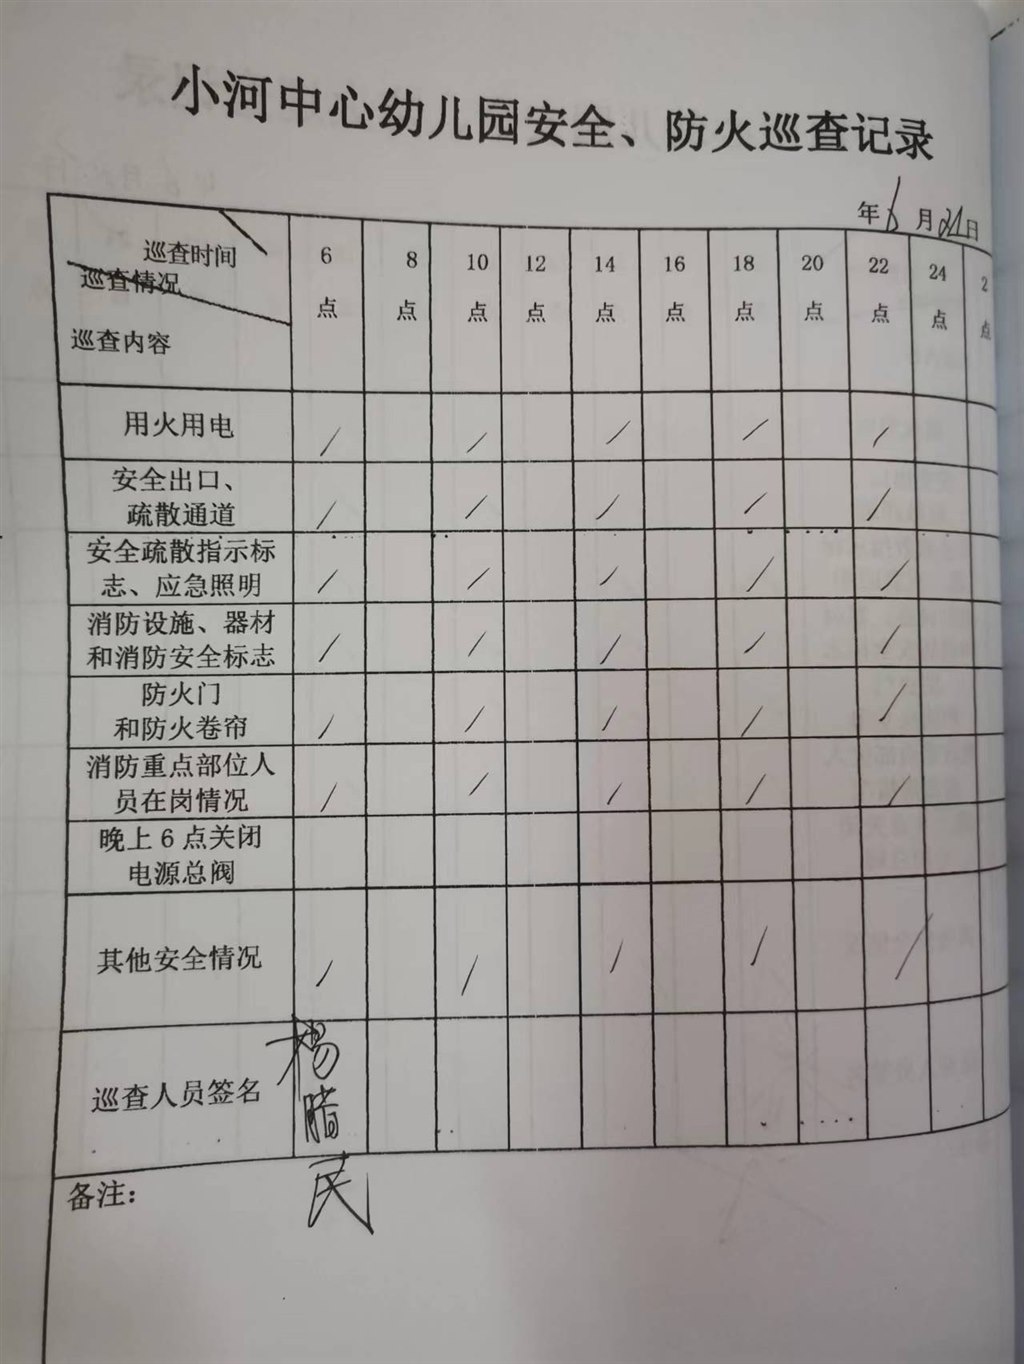 小河中心幼儿园安全、防火巡查记录
年6月21日
巡查时间
巡查情况
巡查内容
6点 8点 10点 12点 14点 16点 18点 20点 22点 24点 2点
用火用电 / / / / /
安全出口、
疏散通道 / / / / /
安全疏散指示标
志、应急照明 / / / / /
消防设施、器材
和消防安全标志 / / / / /
防火门
和防火卷帘 / / / / /
消防重点部位人
员在岗情况 / / / / /
晚上6点关闭
电源总阀
其他安全情况 / / / / /
巡查人员签名 杨
民
备注：